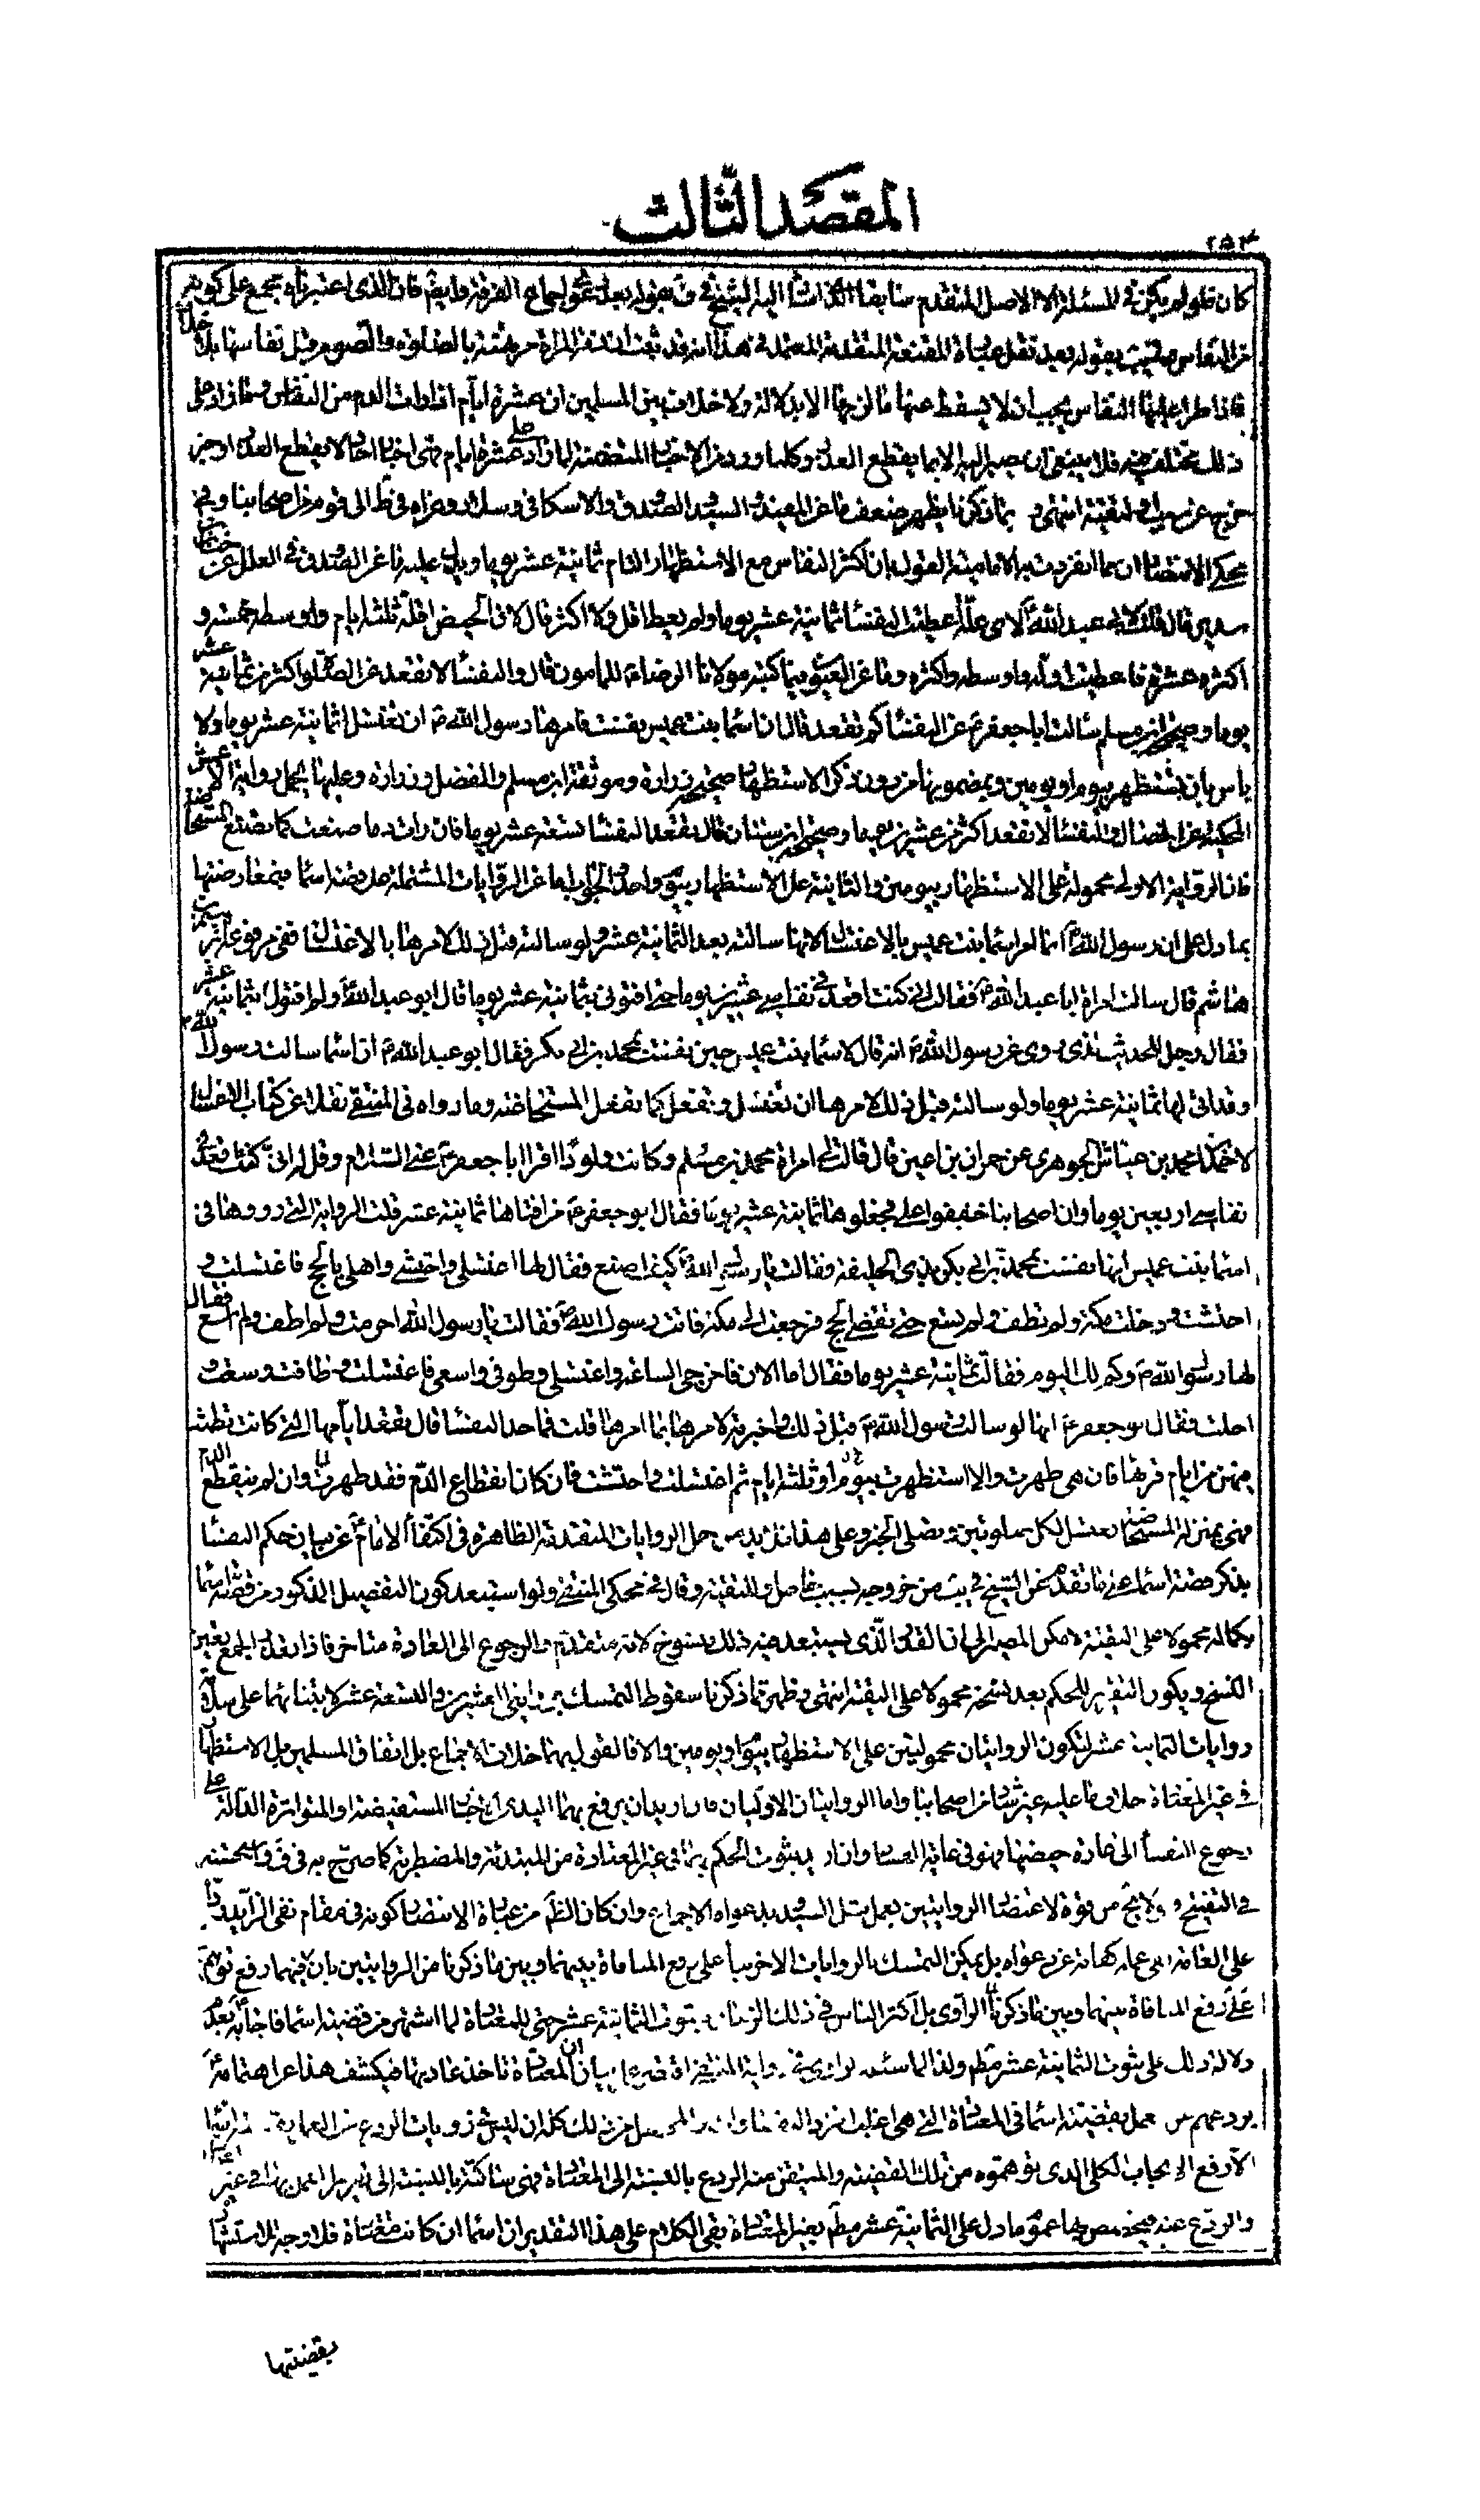 المقصد الثالث
٢٥٣
كان فلو لم يكن في المسئلة الا الاصل المتقدم سابقا الذى اشار اليه الشيخ في ف بقوله بعد دعوى اجماع الفرقة وايضا فان الذى اعتبرناه مجمع على كونه
من النفاس وفي يب بقوله بعد نقل عبارة المقنعة المتقدمة المعتمد في هذا انه قد ثبت ان ذمة المراة مرتهنة بالصلوة والصوم قبل نفاسها بلا خلاف
فاذا طرا عليها النفاس يجب ان لا يسقط عنها ما لزمها الا بدلالة ولا خلاف بين المسلمين ان عشرة ايام اذا رات الدم من النفاس وما زاد على
ذلك مختلف فيه فلا ينبغى ان يصير اليه الا بما يقطع العذر وكلما ورد من الاخبار المتضمنة لما زاد على عشرة ايام فهى اخبار احاد لا يقطع العذر او خبر
خرج عن سبب او لتقية انتهى و بما ذكرنا يظهر ضعف ما عن المفيد والسيد والصدوق والاسكافي وسلار وعزاه في ط الى قوم من اصحابنا وفي
محكى الانتصار ان مما انفردت به الامامية القول بان اكثر النفاس مع الاستظهار التام ثمانية عشر يوما ويدل عليه ما عن الصدوق في العلل عن حنان بن
سدير قال قلت لابى عبد الله لاى علة اعطيت النفساء ثمانية عشر يوما ولم يعط اقل ولا اكثر قال لان الحيض اقله ثلثة ايام واوسطه خمسة و
اكثره عشرة فاعطيت اوله واوسطه واكثره وما عن العيون فيما كتبه مولانا الرضا ع للمامون قال والنفساء لا تقعد عن الصلوة اكثر من ثمانية عشر
يوما وصحيحة ابن مسلم سالت ابا جعفر ع عن النفساء كم تقعد قال ان اسماء بنت عميس نفست فامرها رسول الله ص ان تغتسل لثمانية عشر يوما ولا
باس بان تستظهر بيوم او يومين وبمضمونها من دون ذكر الاستظهار صحيحة زرارة وموثقة ابن مسلم والفضل وزرارة وعليها يحمل رواية
المحكية عن الخصال والنفساء لا تقعد اكثر من عشرين يوما وصحيحة ابن سنان قال تقعد النفساء تسعة عشر يوما فان رات دما صنعت كما تصنع المستحاضة
فان الرواية الاولى محمولة على الاستظهار بيومين والثانية على الاستظهار بيوم واحد والجواب اما عن الروايات المشتملة على قضية اسماء فبمعارضتها
بما دل على ان رسول الله ص انما امر اسماء بنت عميس بالاغتسال لانها سالته بعد الثمانية عشر ولو سالته قبل ذلك لامرها بالاغتسال ففى مرفوعة ابراهيم بن
هاشم قال سالت امراة ابا عبد الله ع فقالت انى كنت اقعد في نفاسى عشرين يوما حتى افتونى بثمانية عشر يوما فقال ابو عبد الله ع ولم افتوك بثمانية عشر
فقال رجل للحديث الذى روى عن رسول الله ص انه قال لاسماء بنت عميس حين نفست بمحمد بن ابى بكر فقال ابو عبد الله ع ان اسماء سالت رسول الله ص
وقد اتى لها ثمانية عشر يوما ولو سالته قبل ذلك لامرها ان تغتسل وتفعل كما تفعل المستحاضة وما رواه في المنتقى نقلا عن كتاب الاغسال
لاحمد بن محمد بن عياش الجوهرى عن حمران بن اعين قال قالت لى امراة محمد بن مسلم وكانت ولودا اقرا ابا جعفر ع عنى السلام وقل له انى كنت اقعد في
نفاسى اربعين يوما وان اصحابنا ضيقوا على فجعلوها ثمانية عشر يوما فقال ابو جعفر ع من افتاها ثمانية عشر قلت الرواية التى رووها في
اسماء بنت عميس انها نفست بمحمد بن ابى بكر بذى الحليفة فقالت يا رسول الله ص كيف اصنع فقال لها اغتسلى واحتشى واهلى بالحج فاغتسلت و
احتشت ودخلت مكة ولم تطف ولم تسع حتى تقضى الحج فرجعت الى مكة فاتت رسول الله ص فقالت يا رسول الله احرمت ولم اطف ولم اسع فقال
لها رسول الله ص وكم لك اليوم فقالت ثمانية عشر يوما فقال اما الان فاخرجى الساعة واغتسلى وطوفى واسعى فاغتسلت وطافت وسعت و
احلت فقال ابو جعفر ع انها لو سالت رسول الله ص قبل ذلك واخبرته لامرها بما امرها قلت فما حد النفساء قال تقعد ايامها التى كانت تطمث
فيهن من ايام قرئها فان هى طهرت والا استظهرت بيومين او ثلثة ايام ثم اغتسلت واحتشت فان كان انقطاع الدم فقد طهرت وان لم ينقطع الدم
فهى بمنزلة المستحاضة تغتسل لكل صلوتين وتصلى الخبر وعلى هذا فلا بد من حمل الروايات المتقدمة الظاهرة في اكتفاء الامام ع عن بيان حكم النفساء
بذكر قضية اسماء على ما تقدم عن الشيخ في يب من خروجه لسبب خاص او للتقية وقال في محكى المنتقى ولو استبعد كون التفصيل المذكور من قضية اسماء
بكماله محمولا على التقية لامكن المصير الى ان القدر الذى يستبعد فيه ذلك منسوخ لانه متقدم والرجوع الى العادة متاخر فاذا تعذر الجمع بغير
النسخ ويكون التقرير للحكم بعد نسخه محمولا على التقية انتهى وظهر مما ذكرنا سقوط التمسك بروايتى العشرين والتسعة عشر لابتنائهما على سلامة
روايات الثمانية عشر لتكون الروايتان محمولتين على الاستظهار بيوم او يومين والا فالقول بهما خلاف الاجماع بل اتفاق المسلمين بل الاستظهار
في غير المعتادة خلاف ما عليه غير شاذ من اصحابنا واما الروايتان الاوليان فان اريد ان يرفع بهما اليد عن الاخبار المستفيضة او المتواترة الدالة على
رجوع النفساء الى عادة حيضها فهو في غاية الفساد وان اريد ثبوت الحكم بهما في غير المعتادة من المبتدئة والمضطربة كما صرح به في
في التنقيح ولا يخ من قوة لاعتضاد الروايتين بعمل مثل السيد بعد دعواه الاجماع وان كان الظم من عبارة الانتصار كونه في مقام نفى الزايد ردا
على العامة بل يمكن التمسك بالروايات الاخر بناء على رفع المنافاة بينهما وبين ما ذكرنا من الروايتين بان فيهما رفع توهم
على رفع المنافاة بينهما وبين ما ذكرنا الراوى بل اكثر الناس في ذلك الزمان ثبوت الثمانية عشر حتى للمعتادة لما اشتهر من قضية اسماء فاجابه بعدم
دلالة ذلك على ثبوت الثمانية عشر مطم ولذا لما سئله الراوى في رواية المنتقى اقتصر على بيان ان المعتادة تاخذ عادتها فيكشف هذا عن اهتمامه
بردعهم عن عمل بقضية اسماء في المعتادة التى هى اغلب
الا رفع الايجاب الكلى الذى توهموه من تلك القضية والمتيقن منه الردع بالنسبة الى المعتادة فهى ساكتة بالنسبة الى
والردع عنه فيخصص بها عموم ما دل على الثمانية عشر مطم بغير المعتادة بقى الكلام على هذا التقدير ان اسماء ان كانت معتادة فلا وجه للاستشهاد
بقضيتها